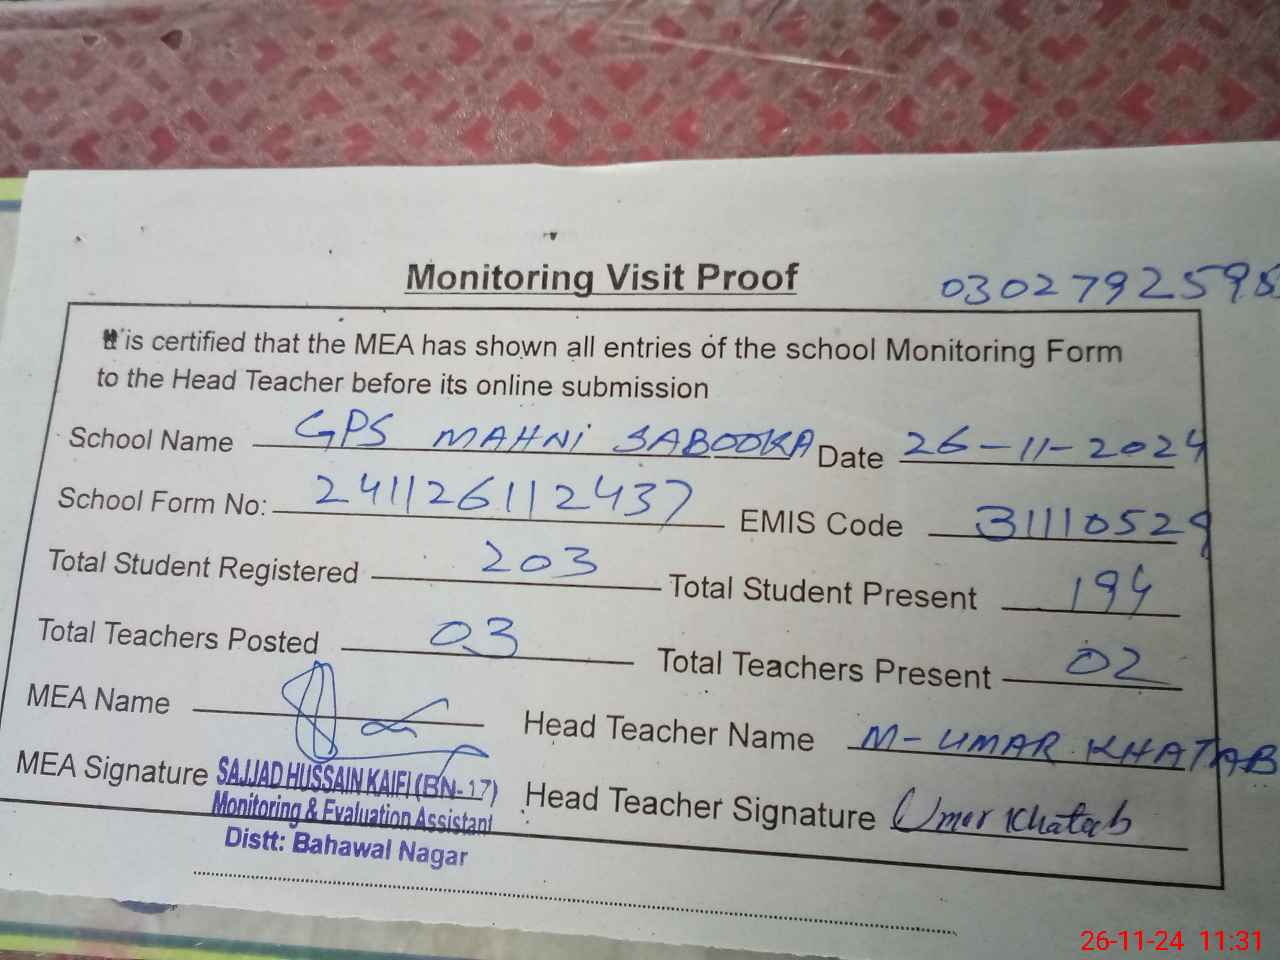 Monitoring Visit Proof
0302792598
It is certified that the MEA has shown all entries of the school Monitoring Form
to the Head Teacher before its online submission
School Name GPS MAHNI SABOOKA Date 26-11-2024
School Form No: 241126112437 EMIS Code 31110529
Total Student Registered 203 Total Student Present 194
Total Teachers Posted 03 Total Teachers Present 02
MEA Name Head Teacher Name M-UMAR KHATAB
MEA Signature SAJJAD HUSSAIN KAIFI (BN-17) Head Teacher Signature Umer Khatab
Monitoring & Evaluation Assistant
Distt: Bahawal Nagar
26-11-24 11:31